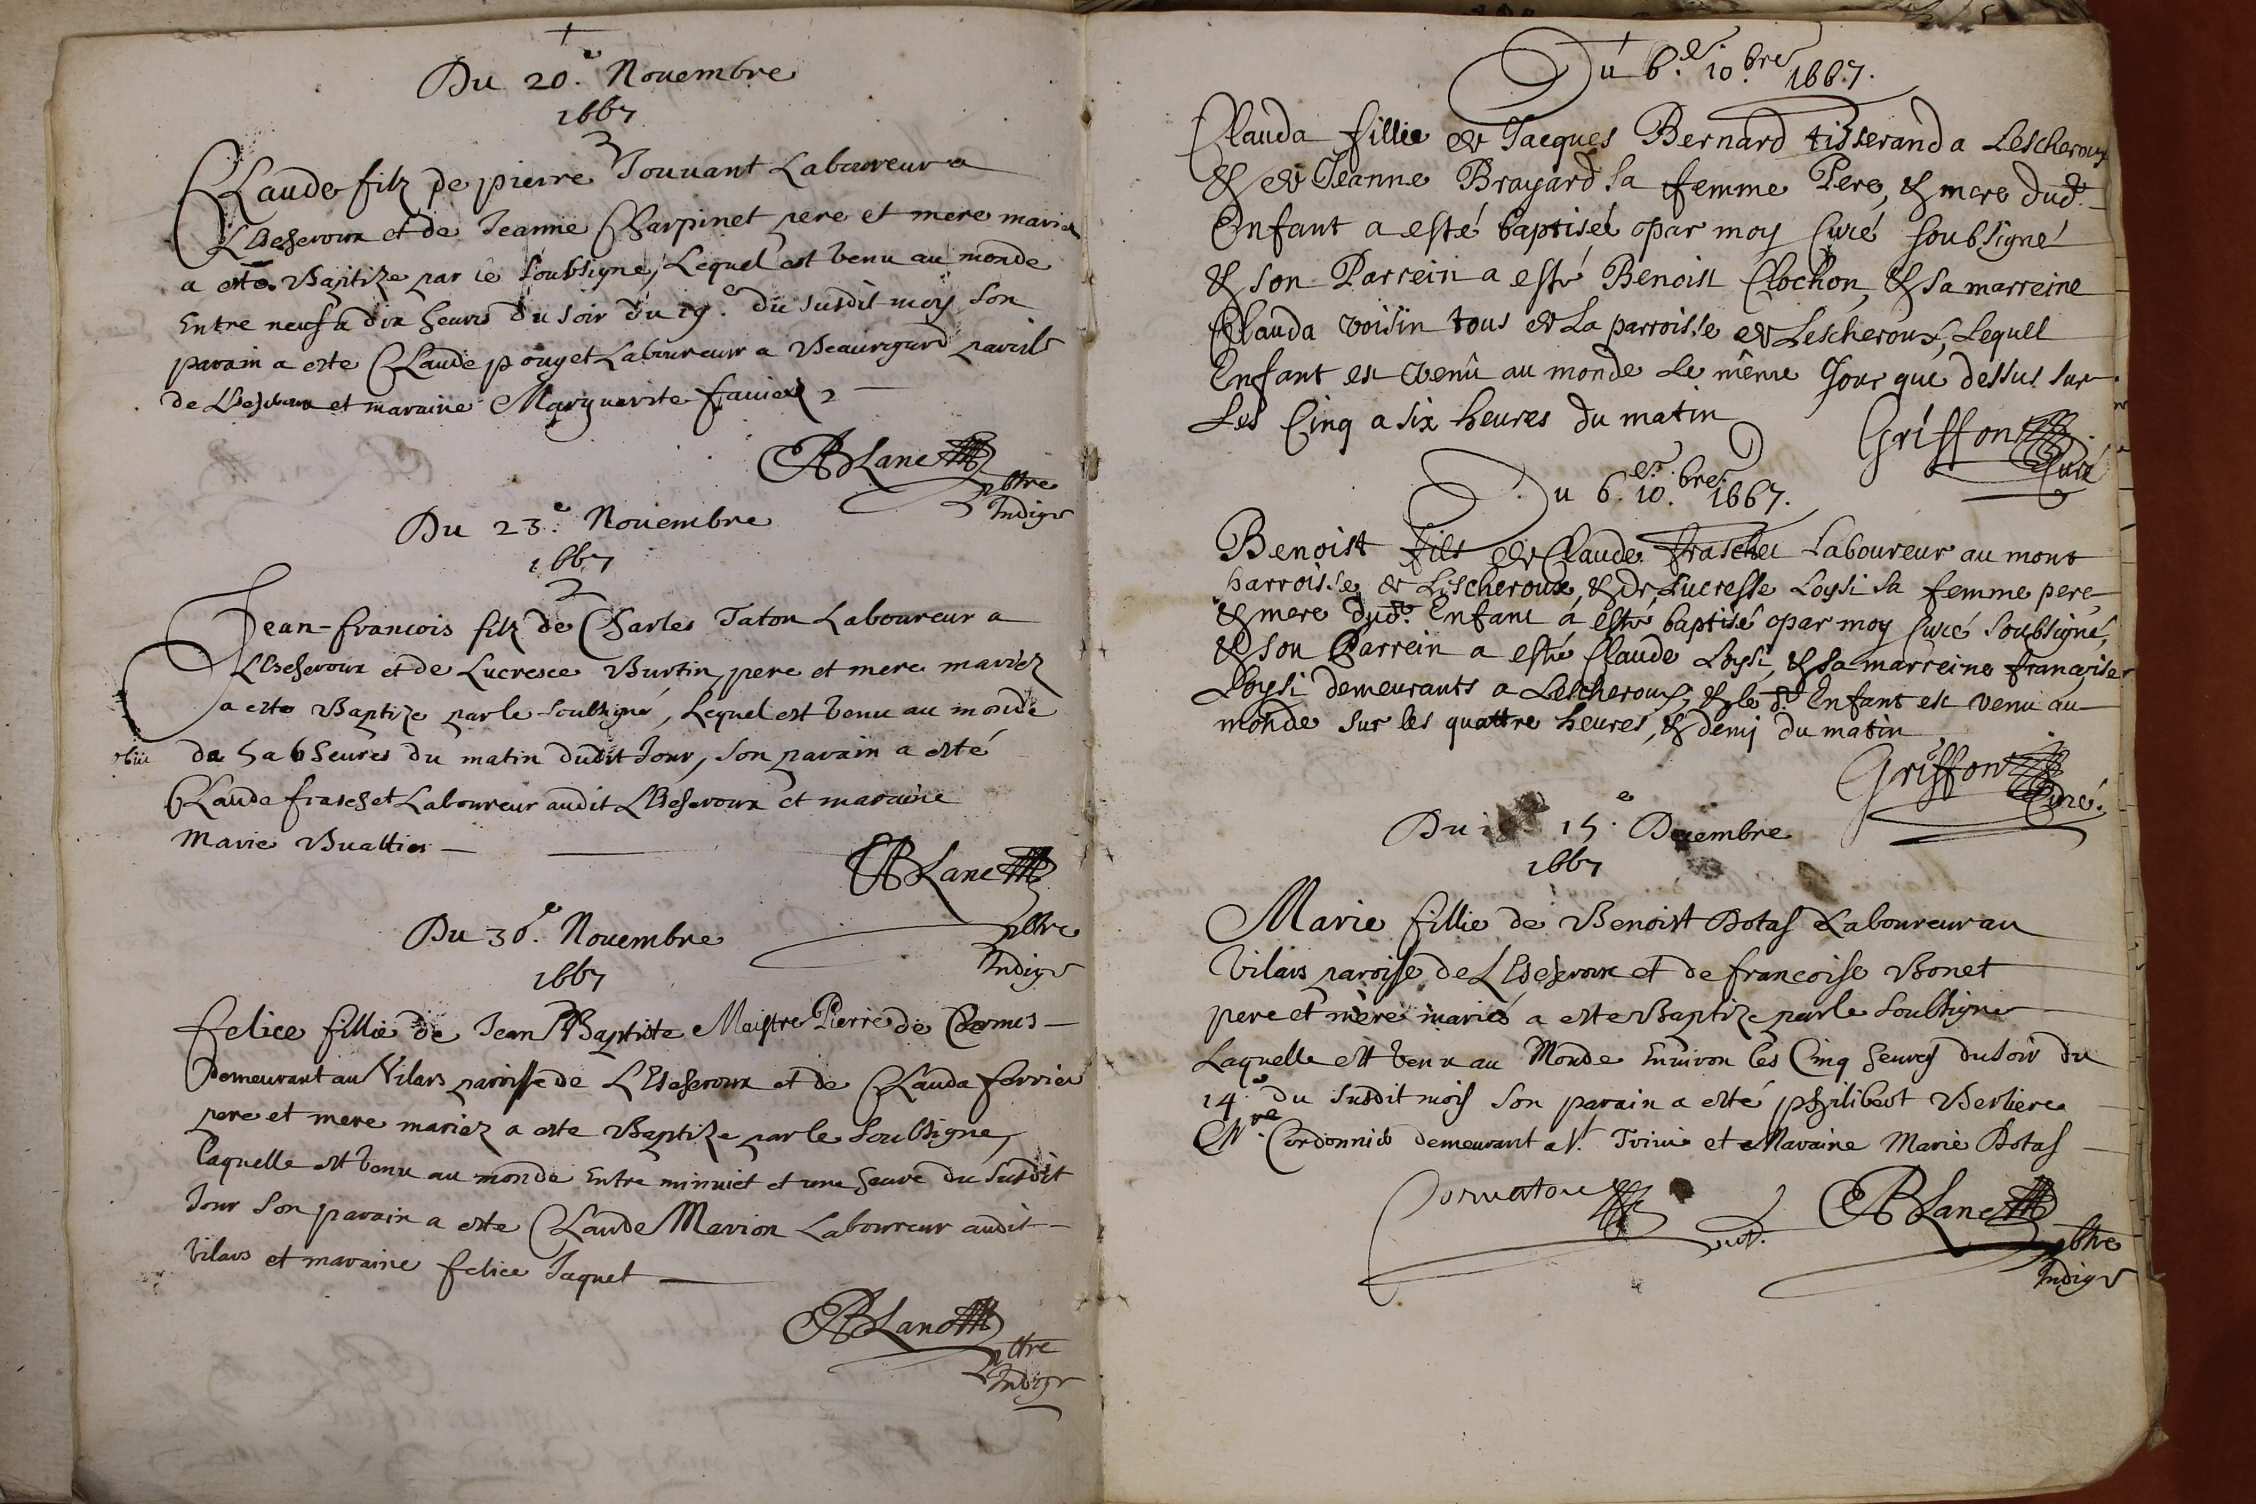 Du 20.e Nouembre
1667
Claude filz de pierre Jouuant Laboureur a
LEscheroux et de Jeanne Charpinet pere et mere mariez
a este Baptize par le soubsigne, Lequel est venu au monde
Entre neuf a dix heures du soir du 19.e du susdit moys son
parain a este Claude pouget Laboureur a Beauregard paroisse
de LEscheroux et maraine Marguerite fauier
Blanc
pbtre
Indigne
Du 23.e Nouembre
1667
Jean-francois filz de Charles Taton Laboureur a
LEscheroux et de Lucresce Burtin pere et mere mariez
a este Baptize par le soubsigné, Lequel est venu au monde
de 5 a 6 heures du matin dudit Jour, son parain a esté
obiit
Claude fraschet Laboureur audit LEscheroux et maraine
Marie Buattier
Blanc
pbtre
Indigne
Du 30.e Nouembre
1667
felice fillie de Jean Baptiste Maistre Pierre de Cormes
Demeurant au Vilars paroisse de LEscheroux et de Clauda ferrier
pere et mere mariez a este Baptize par le soubsigne,
Laquelle est venu au monde Entre minuict et une heure du susdit
Jour son parain a este Claude Marion Laboureur audit
Vilars et maraine felice Jaquet
Blanc
pbtre
Indigne
Du 6.e 10.bre 1667.
Clauda fillie de Jacques Bernard tisserand a Lescheroux
& de Jeanne Brayard sa femme Pere, & mere dud.t
Enfant a esté baptiséé par moy Curé soubsigné
& son Parrein a esté Benoist Clochon, & sa marreine
Clauda voisin tous de La parroisse de Lescheroux, Lequel
Enfant est venû au monde Le même Jour que dessus sur
Les Cinq a six heures du matin
Griffon
Curé
Du 6.e 10.bre 1667.
Benoist fils de Claude fraschet Laboureur au mont
parroisse de Lescheroux, & de Lucresse Loysi sa femme pere
& mere dud.t Enfant a esté baptisé par moy Curé soubsigné,
& son Parrein a esté Claude Loysi, & sa marreine françoise
Loysi demeurants a Lescheroux, & le d.t Enfant est venu au
monde sur les quattre heures, & demi du matin
Griffon
Curé.
Du 15.e Decembre
1667
Marie fillie de Benoist Botas Laboureur au
Vilars paroisse de LEscheroux et de francoise Bonet
pere et mere mariés a este Baptize par le soubsigne
Laquelle est venu au Monde Enuiron les Cinq heures du soir du
14.e du susdit mois son parain a esté philibert Berliere
M.re Cordonnier demeurant a S.t Triuie et Maraine Marie Botas
Cornaton
Blanc
pbtre
Indigne